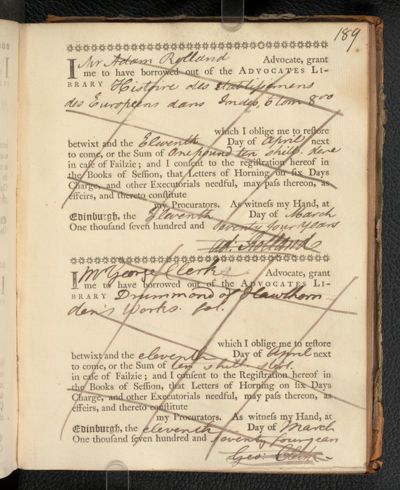 189
I Mr Adam Rolland Advocate, grant
me to have borrowed out of the ADVOCATES LI-
BRARY Histoire des etablissmens
des Europeens dans Indes 6 tom 8vo
which I oblige me to restore
betwixt and the Eleventh Day of April next
to come, or the Sum of One pound ten shill. ster
in case of Failzie; and I consent to the registration hereof in
the Books of Session, that Letters of Horning on six Days
Charge, and other Executorials needful, may pass thereon, as
effeirs, and thereto constitute
my Procurators. As witness my Hand, at
Edinburgh, the Eleventh Day of March
One thousand seven hundred and seventy four years
Ad. Rolland
I Mr George Clerk Advocate, grant
me to have borrowed out of the ADVOCATES LI-
BRARY Drummond of Hawthorn
dens Works. fol.
which I oblige me to restore
betwixt and the eleventh Day of April next
to come, or the Sum of ten shill. ster.
in case of Failzie; and I consent to the Registration hereof in
the Books of Session, that Letters of Horning on six Days
Charge, and other Executorials needful, may pass thereon, as
effeirs, and thereto constitute
my Procurators. As witness my Hand, at
Edinburgh, the eleventh Day of March
One thousand seven hundred and seventy four years
Geo: Clerk